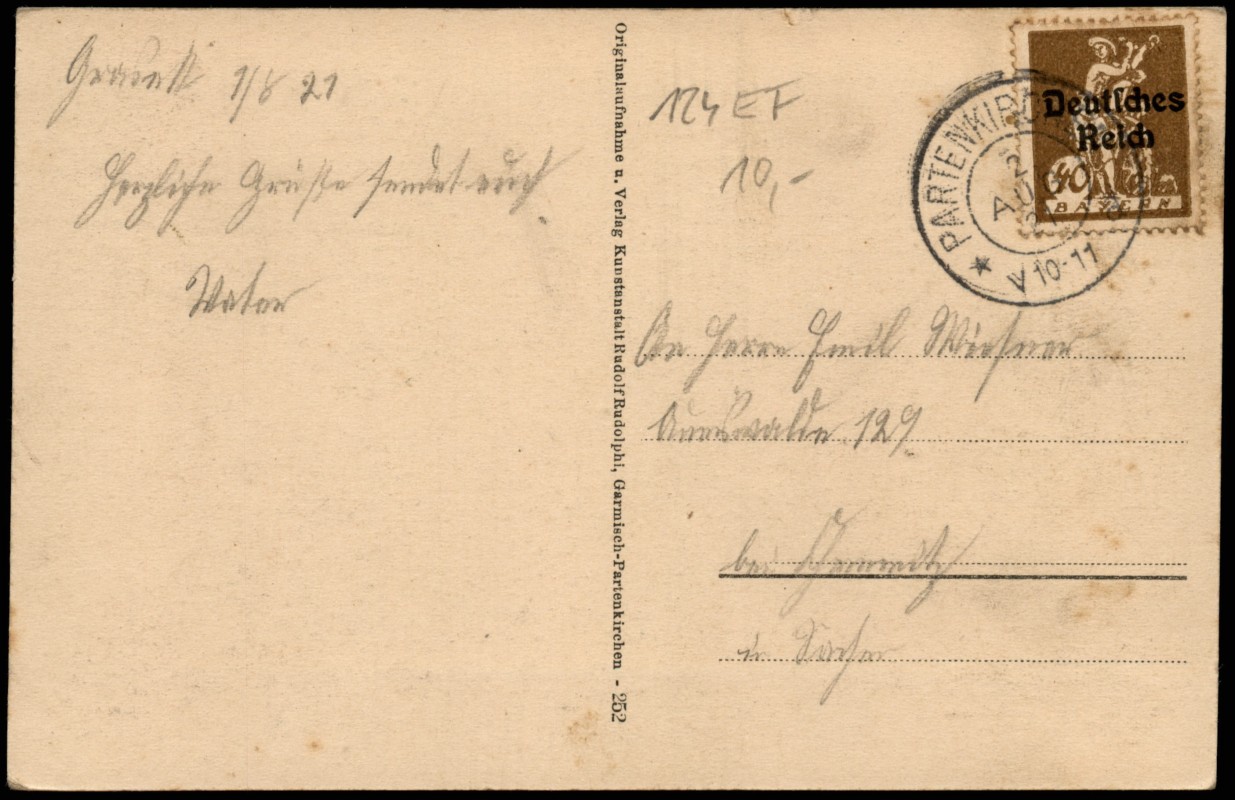 1/8 21
Herzliche Grüße sendet euch
Vater
Originalaufnahme u. Verlag Kunstanstalt Rudolf Rudolphi, Garmisch-Partenkirchen - 252
124 EF
10,-
Deutsches
Reich
40
BAYERN
★ PARTENKIRCHEN
2
AUG
21
V 10-11
An Herrn Emil Wießner
Auerswalde 129
bei Chemnitz
in Sachsen